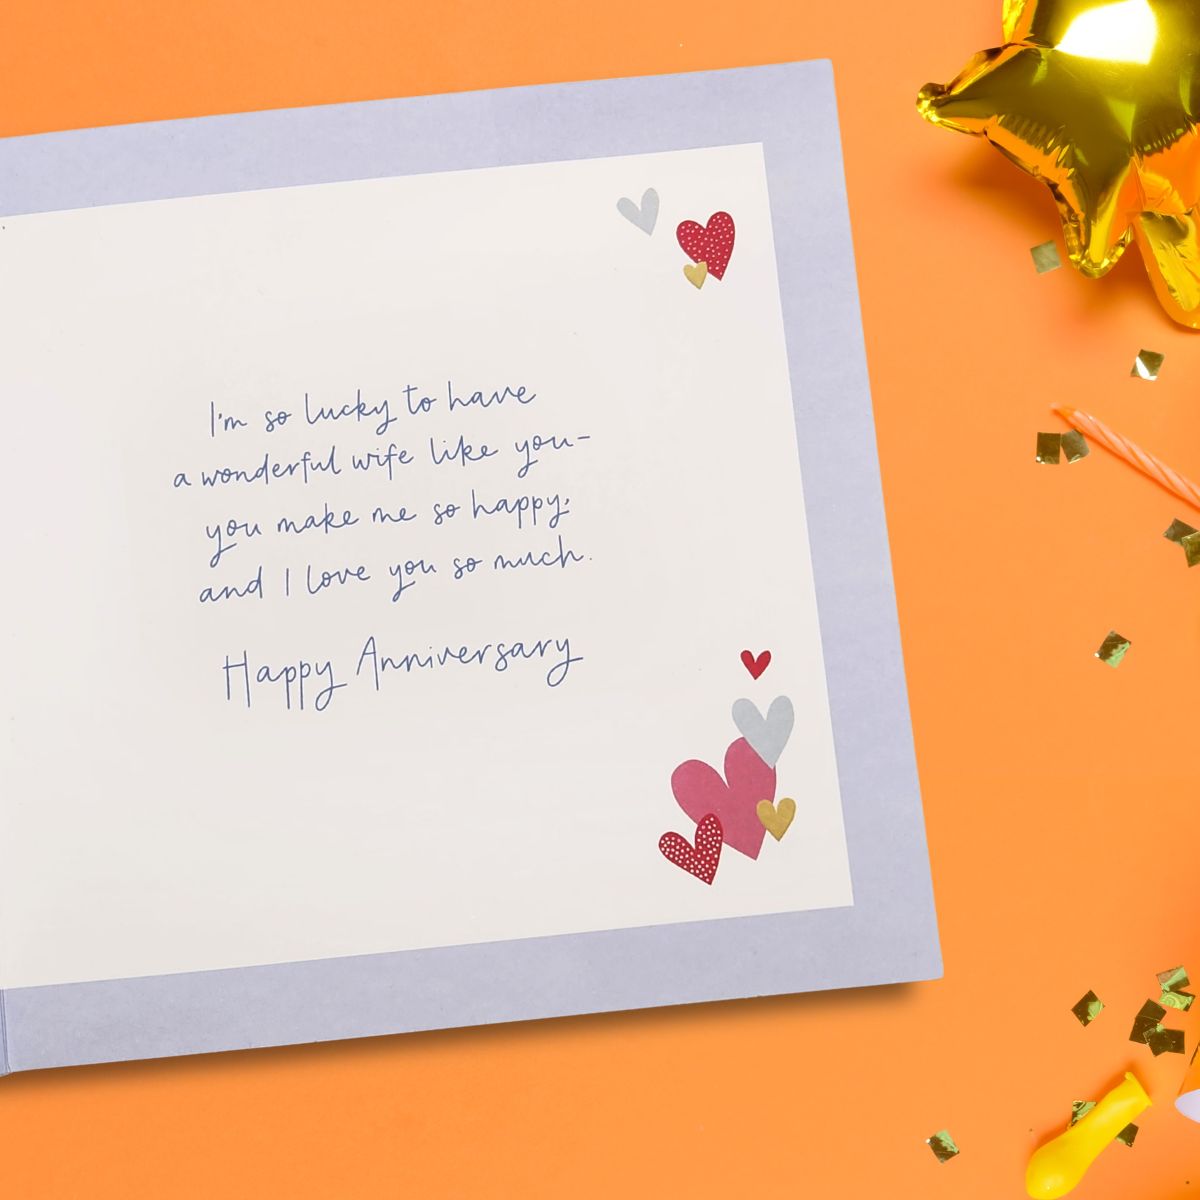 I'm so lucky to have
a wonderful wife like you-
you make me so happy,
and I love you so much.
Happy Anniversary